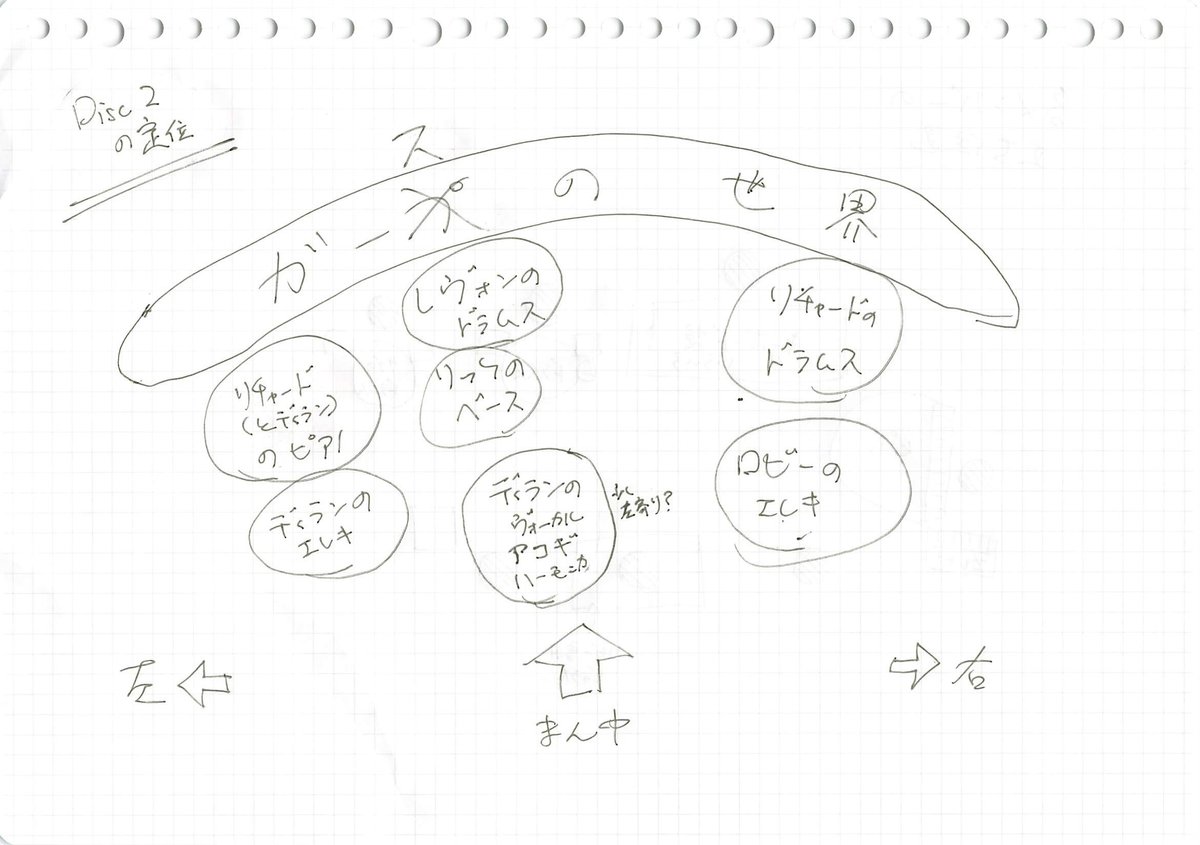 Disc 2
の定位
ス
ガーオの世界
レヴォンの
ドラムス
リチャードの
ドラムス
リチャード
(とディラン)
のピアノ
リックの
ベース
ディランの
エレキ
ディランの
ヴォーカル
アコギ
ハーモニカ
少し
左寄り?
ロビーの
エレキ
左
まん中
右